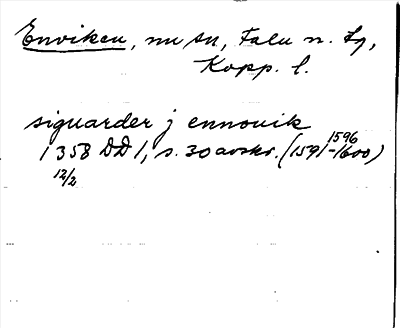 Enviken, nu sn, Falu n. tg,
Kopp. l.
siguarder j ennouik
1358 DD 1, s. 30 avskr. (1591-1600)
1596
12/2